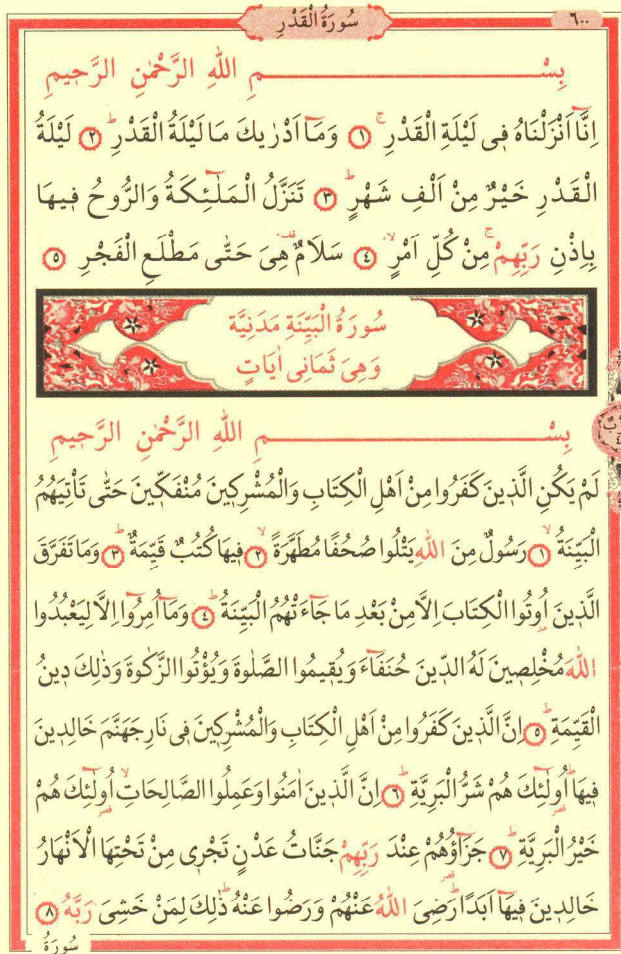 ٦٠٠ سُورَةُ الْقَدْرِ
بِسْمِ اللهِ الرَّحْمٰنِ الرَّحٖيمِ
اِنَّٓا اَنْزَلْنَاهُ فٖى لَيْلَةِ الْقَدْرِۚ ﴿١﴾ وَمَٓا اَدْرٰيكَ مَا لَيْلَةُ الْقَدْرِؕ ﴿٢﴾ لَيْلَةُ
الْقَدْرِ خَيْرٌ مِنْ اَلْفِ شَهْرٍؕ ﴿٣﴾ تَنَزَّلُ الْمَلٰٓئِكَةُ وَالرُّوحُ فٖيهَا
بِاِذْنِ رَبِّهِمْۚ مِنْ كُلِّ اَمْرٍۙ ﴿٤﴾ سَلَامٌࣞ هِىَ حَتّٰى مَطْلَعِ الْفَجْرِ ﴿٥﴾
سُورَةُ الْبَيِّنَةِ مَدَنِيَّة
وَهِىَ ثَمَانِى اٰيَاتٍ
بِسْمِ اللهِ الرَّحْمٰنِ الرَّحٖيمِ
لَمْ يَكُنِ الَّذٖينَ كَفَرُوا مِنْ اَهْلِ الْكِتَابِ وَالْمُشْرِكٖينَ مُنْفَكّٖينَ حَتّٰى تَاْتِيَهُمُ
الْبَيِّنَةُۙ ﴿١﴾ رَسُولٌ مِنَ اللهِ يَتْلُوا صُحُفًا مُطَهَّرَةًۙ ﴿٢﴾ فٖيهَا كُتُبٌ قَيِّمَةٌؕ ﴿٣﴾ وَمَا تَفَرَّقَ
الَّذٖينَ اُو۫تُوا الْكِتَابَ اِلَّا مِنْ بَعْدِ مَا جَٓاءَتْهُمُ الْبَيِّنَةُؕ ﴿٤﴾ وَمَٓا اُمِرُٓوا اِلَّا لِيَعْبُدُوا
اللهَ مُخْلِصٖينَ لَهُ الدّٖينَ حُنَفَٓاءَ وَيُقٖيمُوا الصَّلٰوةَ وَيُؤْتُوا الزَّكٰوةَ وَذٰلِكَ دٖينُ
الْقَيِّمَةِؕ ﴿٥﴾ اِنَّ الَّذٖينَ كَفَرُوا مِنْ اَهْلِ الْكِتَابِ وَالْمُشْرِكٖينَ فٖى نَارِ جَهَنَّمَ خَالِدٖينَ
فٖيهَاؕ اُو۬لٰٓئِكَ هُمْ شَرُّ الْبَرِيَّةِؕ ﴿٦﴾ اِنَّ الَّذٖينَ اٰمَنُوا وَعَمِلُوا الصَّالِحَاتِۙ اُو۬لٰٓئِكَ هُمْ
خَيْرُ الْبَرِيَّةِؕ ﴿٧﴾ جَزَٓاؤُ۬هُمْ عِنْدَ رَبِّهِمْ جَنَّاتُ عَدْنٍ تَجْرٖى مِنْ تَحْتِهَا الْاَنْهَارُ
خَالِدٖينَ فٖيهَٓا اَبَدًاؕ رَضِىَ اللهُ عَنْهُمْ وَرَضُوا عَنْهُؕ ذٰلِكَ لِمَنْ خَشِىَ رَبَّهُ ﴿٨﴾
سُورَةُ